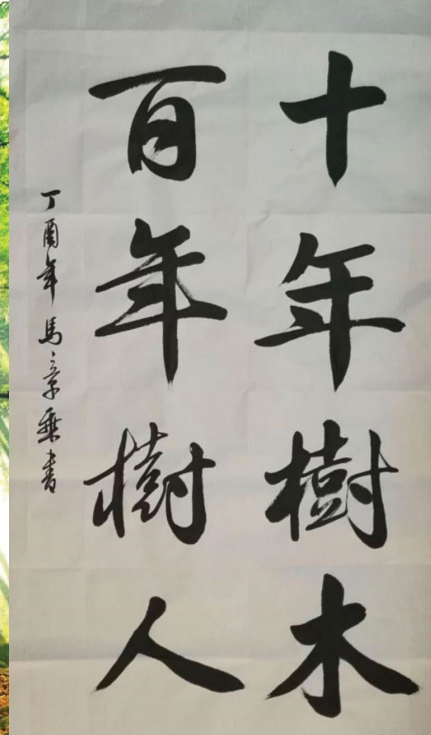 十年樹木
百年樹人
丁酉年 馬章乘書